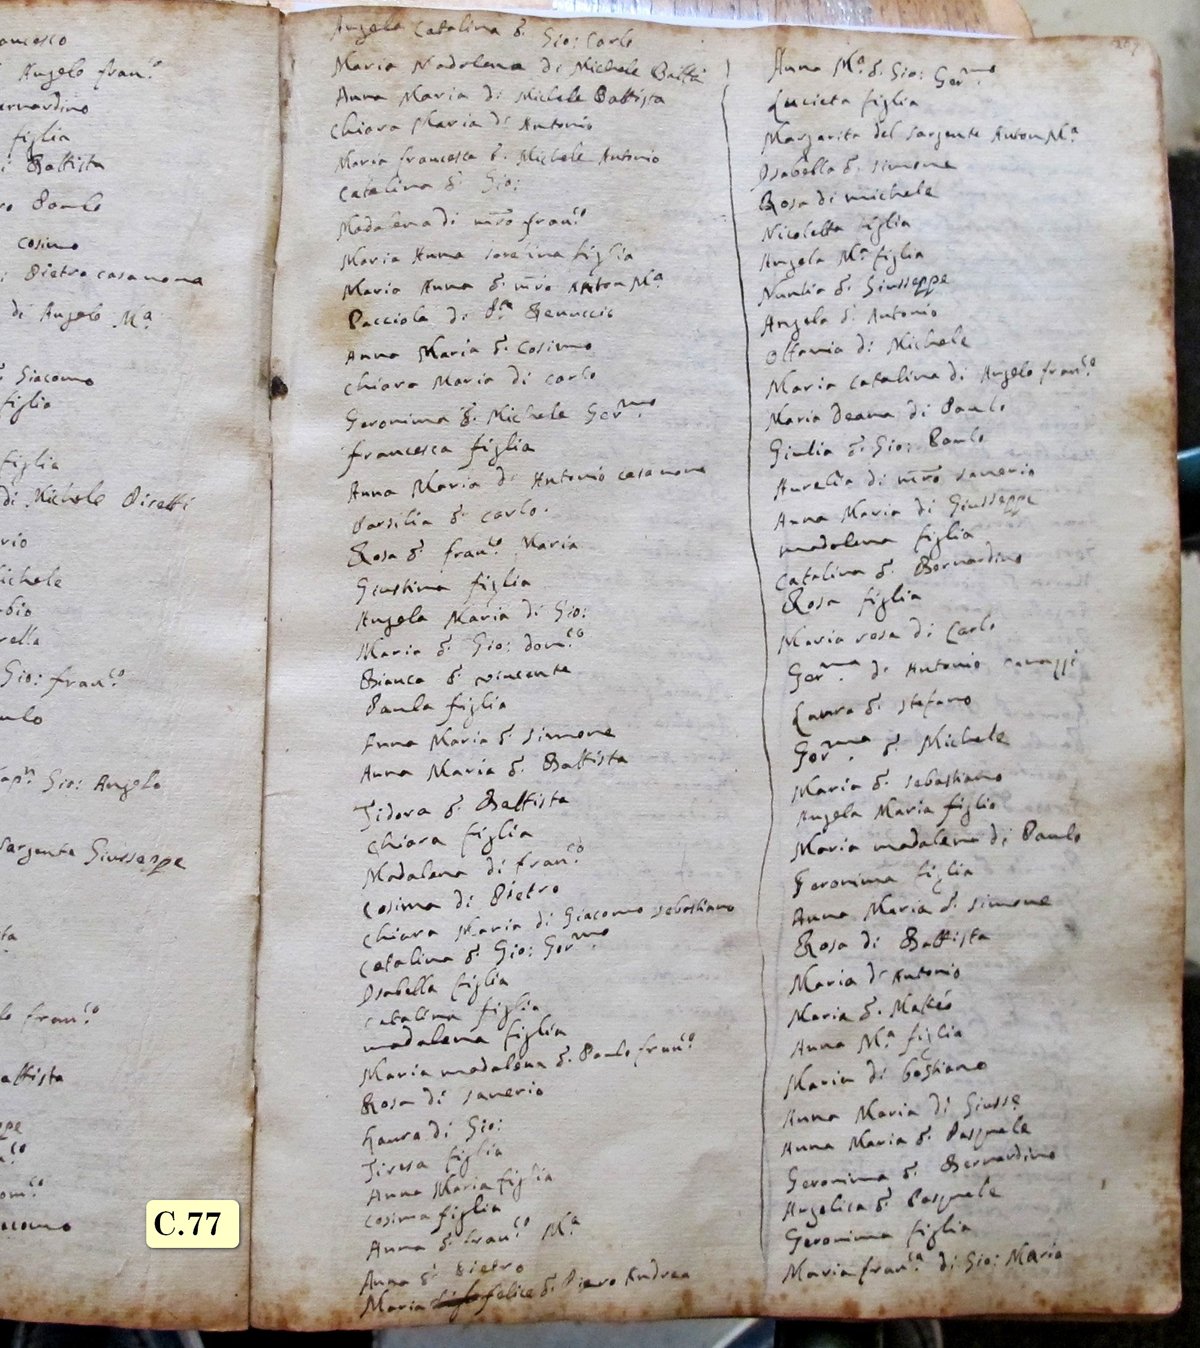 ancesco
Angelo fran.co
ernardino
figlia
i Battista
ro Paulo
Cosimo
Pietro casanoua
di Angelo M.a
Giacomo
figlia
figlia
di Michele
rio
ichele
bio
rella
Gio: fran.co
aulo
Cap.n Gio: Angelo
Sargente Giusseppe
ta
lo fran.co
attista
ppe
co
om.co
acomo
C.77
Angela Catalina q. Gio: Carlo
Maria Madalena di Michele Batta
Anna Maria di Michele Battista
Chiara Maria di Antonio
Maria francesca q. Michele Antonio
Catalina q. Gio:
Madalena di mro fran.co
Maria Anna figlia
Maria Anna q. mro Anton M.a
Pacciola di
Anna Maria q. Cosimo
Chiara Maria di Carlo
Geronima q. Michele Ger.mo
francesca figlia
Anna Maria di Antonio casanoua
Parsilia q. Carlo.
Rosa q. fran.co Maria
Giustina figlia
Angela Maria di Gio:
Maria q. Gio: dom.co
Bianca q. vincente
Paula figlia
Anna Maria q. simone
Anna Maria q. Battista
Tidora q. Battista
Chiara figlia
Madalena di fran.co
Cosima di Pietro
Chiara Maria di Giacomo sebastiano
Catalina q. Gio: Ger.mo
Isabella figlia
Catalina figlia
madalena figlia
Maria madalena q. Paulo fran.co
Rosa di sauerio
Laura di Gio:
Tiresa figlia
Anna Maria figlia
Cosima figlia
Anna q. fran.co M.a
Anna q. Pietro
Maria felice q. Piero Andrea
Anna M.a q. Gio: Ger.mo
Lucieta figlia
Margarita del sargente Anton M.a
Isabella q. simone
Rosa di michele
Nicoletta figlia
Angela M.a figlia
Nuntia q. Giusseppe
Angela q. Antonio
Ottauia di Michele
Maria Catalina di Angelo fran.co
Maria Deana di Paulo
Giulia q. Gio: Paulo
Aurelia di mro sauerio
Anna Maria di Giusseppe
madalena figlia
Catalina q. Bernardino
Rosa figlia
Maria rosa di Carlo
Ger.ma di Antonio
Laura q. stefano
Ger.ma q. Michele
Maria q. sebastiano
Angela Maria figlia
Maria madalena di Paulo
Geronima figlia
Anna Maria q. simone
Rosa di Battista
Maria di Antonio
Maria q. Matteo
Anna M.a figlia
Maria di bastiano
Anna Maria di Giusse
Anna Maria q. Pasquale
Geronima q. Bernardino
Angelica q. Pasquale
Geronima figlia
Maria fran.ca di Gio: Maria